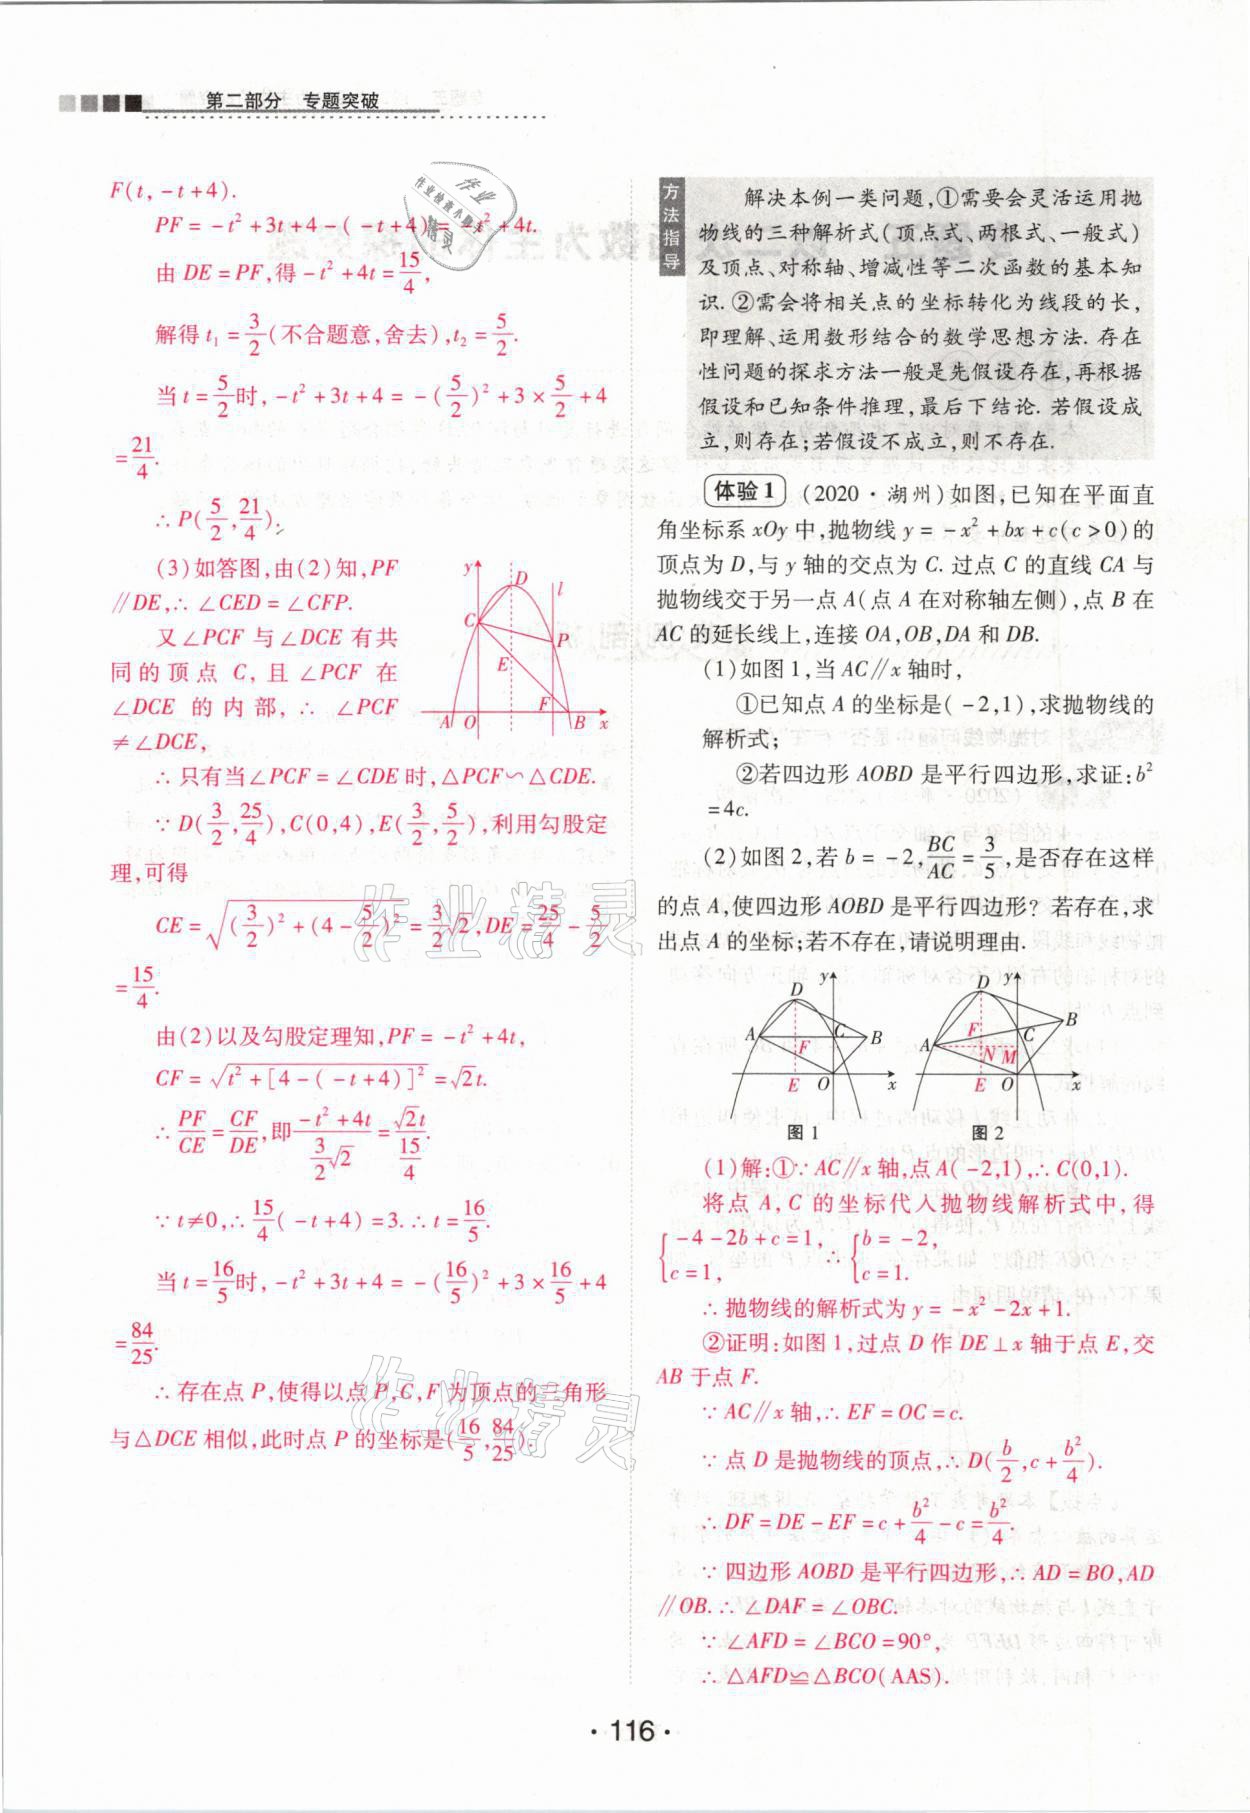 第二部分 专题突破
F(t, -t+4).
PF = -t²+3t+4-(-t+4) = -t²+4t.
由 DE=PF,得 -t²+4t=15/4,
解得 t₁=3/2(不合题意,舍去),t₂=5/2.
当 t=5/2时, -t²+3t+4 = -(5/2)²+3×5/2+4
=21/4.
∴ P(5/2, 21/4).
(3)如答图,由(2)知,PF
∥DE,∴ ∠CED=∠CFP.
又∠PCF 与∠DCE 有共
同的顶点 C, 且∠PCF 在
∠DCE 的内部, ∴ ∠PCF
≠∠DCE,
y D l C P E F A O B x
∴ 只有当∠PCF=∠CDE 时,△PCF∽△CDE.
∵ D(3/2, 25/4),C(0,4),E(3/2, 5/2),利用勾股定
理,可得
CE=√((3/2)²+(4-5/2)²)=3/2√2,DE=25/4-5/2
=15/4.
由(2)以及勾股定理知,PF=-t²+4t,
CF=√(t²+[4-(-t+4)]²)=√2t.
∴ PF/CE=CF/DE,即(-t²+4t)/(3/2√2)=√2t/(15/4).
∵ t≠0,∴ 15/4(-t+4)=3.∴ t=16/5.
当 t=16/5时, -t²+3t+4 = -(16/5)²+3×16/5+4
=84/25.
∴ 存在点 P,使得以点 P,C,F 为顶点的三角形
与△DCE 相似,此时点 P 的坐标是(16/5, 84/25).
方法指导
解决本例一类问题,①需要会灵活运用抛
物线的三种解析式(顶点式、两根式、一般式)
及顶点、对称轴、增减性等二次函数的基本知
识. ②需会将相关点的坐标转化为线段的长,
即理解、运用数形结合的数学思想方法. 存在
性问题的探求方法一般是先假设存在,再根据
假设和已知条件推理,最后下结论. 若假设成
立,则存在;若假设不成立,则不存在.
体验1 (2020·湖州)如图,已知在平面直
角坐标系 xOy 中,抛物线 y=-x²+bx+c(c>0)的
顶点为 D,与 y 轴的交点为 C. 过点 C 的直线 CA 与
抛物线交于另一点 A(点 A 在对称轴左侧),点 B 在
AC 的延长线上,连接 OA,OB,DA 和 DB.
(1)如图 1,当 AC∥x 轴时,
①已知点 A 的坐标是(-2,1),求抛物线的
解析式;
②若四边形 AOBD 是平行四边形,求证:b²
=4c.
(2)如图 2,若 b=-2,BC/AC=3/5,是否存在这样
的点 A,使四边形 AOBD 是平行四边形? 若存在,求
出点 A 的坐标;若不存在,请说明理由.
y D A C B F E O x
图 1
y D B F C A N M E O x
图 2
(1)解:①∵ AC∥x 轴,点 A(-2,1),∴ C(0,1).
将点 A, C 的坐标代入抛物线解析式中, 得
{-4-2b+c=1, c=1, ∴ {b=-2, c=1.
∴ 抛物线的解析式为 y=-x²-2x+1.
②证明:如图 1,过点 D 作 DE⊥x 轴于点 E,交
AB 于点 F.
∵ AC∥x 轴,∴ EF=OC=c.
∵ 点 D 是抛物线的顶点,∴ D(b/2, c+b²/4).
∴ DF=DE-EF=c+b²/4-c=b²/4.
∵ 四边形 AOBD 是平行四边形,∴ AD=BO,AD
∥OB.∴ ∠DAF=∠OBC.
∵∠AFD=∠BCO=90°,
∴△AFD≌△BCO(AAS).
·116·
作业精灵
作业精灵
作业
作业检查小助手
精灵